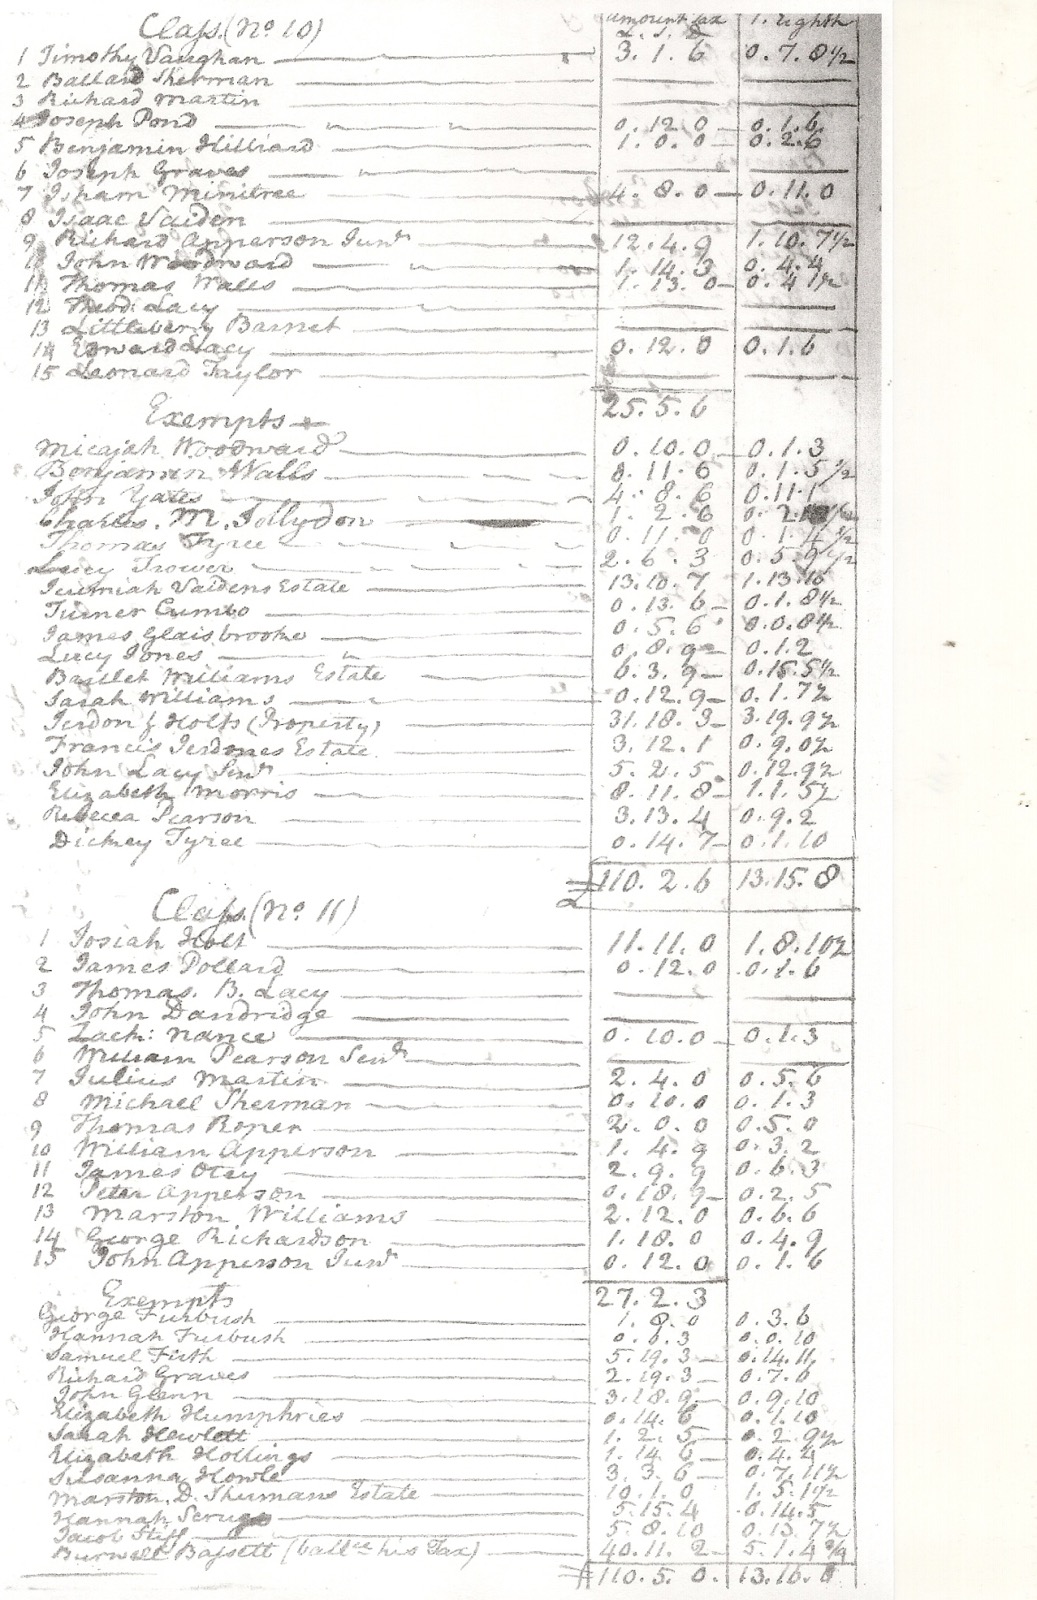 Class (No. 10) amount tax 1. Eighth
£. S. D
1 Timothy Vaughan 3. 1. 6 0. 7. 8½
2 Ballard Sherman
3 Richard Martin
4 Joseph Pond 0. 12. 0 0. 1. 6
5 Benjamin Hilliard 1. 0. 0 0. 2. 6
6 Joseph Graves
7 Isham Minitree 4. 8. 0 0. 11. 0
8 Isaac Vaiden
9 Richard Apperson Junr 12. 4. 9 1. 10. 7½
10 John Woodward 1. 14. 3 0. 4. 4
11 Thomas Walls 1. 13. 0 0. 4. 1½
12 Theod: Lacy
13 Littleberry Barnet
14 Edward Lacy 0. 12. 0 0. 1. 6
15 Leonard Taylor
25. 5. 6
Exempts
Micajah Woodward 0. 10. 0 0. 1. 3
Benjamin Walls 0. 11. 6 0. 1. 5½
John Yates 4. 8. 6 0. 11. 1
Charles. M. Jollydon 1. 2. 6 0. 2.
Thomas Tyree 0. 11. 0 0. 1. 4½
Lucy Trower 2. 6. 3 0. 5. 9½
Jeremiah Vaidens Estate 13. 10. 7 1. 13. 10
Turner Cumbo 0. 13. 6 0. 1. 8½
James Glaisbrooke 0. 5. 6 0. 0. 8½
Lucy Jones 0. 8. 9 0. 1. 2
Bartlet Williams Estate 6. 3. 9 0. 15. 5½
Sarah Williams 0. 12. 9 0. 1. 7½
Jerdon & Holts (Property) 31. 18. 3 3. 19. 9½
Francis Jerdones Estate 3. 12. 1 0. 9. 0½
John Lacy Senr 5. 2. 5 0. 12. 9½
Elizabeth Morris 8. 11. 8 1. 1. 5½
Rebecca Pearson 3. 13. 4 0. 9. 2
Dickey Tyree 0. 14. 7 0. 1. 10
£110. 2. 6 13. 15. 8
Class (No. 11)
1 Josiah Holt 11. 11. 0 1. 8. 10½
2 James Pollard 0. 12. 0 0. 1. 6
3 Thomas. B. Lacy
4 John Dandridge
5 Zach: Nance 0. 10. 0 0. 1. 3
6 William Pearson Senr
7 Julius Martin 2. 4. 0 0. 5. 6
8 Michael Sherman 0. 10. 0 0. 1. 3
9 Thomas Roper 2. 0. 0 0. 5. 0
10 William Apperson 1. 4. 9 0. 3. 2
11 James Otey 2. 9. 9 0. 6. 3
12 Peter Apperson 0. 18. 9 0. 2. 5
13 Marston Williams 2. 12. 0 0. 6. 6
14 George Richardson 1. 18. 0 0. 4. 9
15 John Apperson Junr 0. 12. 0 0. 1. 6
27. 2. 3
Exempts
George Furbush 1. 8. 0 0. 3. 6
Hannah Furbush 0. 6. 3 0. 0. 10
Samuel Firth 5. 19. 3 0. 14. 11
Richard Graves 2. 19. 3 0. 7. 6
John Glenn 3. 18. 9 0. 9. 10
Elizabeth Humphries 0. 14. 6 0. 1. 10
Sarah Hewlett 1. 2. 5 0. 2. 9½
Elizabeth Hollings 1. 14. 6 0. 4. 4
Susanna Howle 3. 3. 6 0. 7. 11½
Marston. D. Shermans Estate 10. 1. 0 1. 5. 1½
Hannah Scruggs 5. 15. 4 0. 14. 5
Jacob Stiff 5. 8. 10 0. 13. 7½
Burwell Bassett (ballce his Tax) 40. 11. 2 5. 1. 4¾
£110. 5. 0. 13. 16. 8